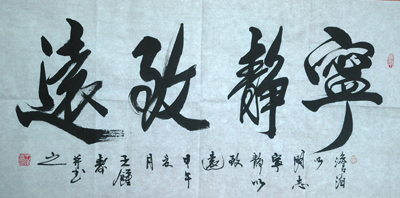 寧靜致遠
澹泊以明志寧靜以致遠甲午月王